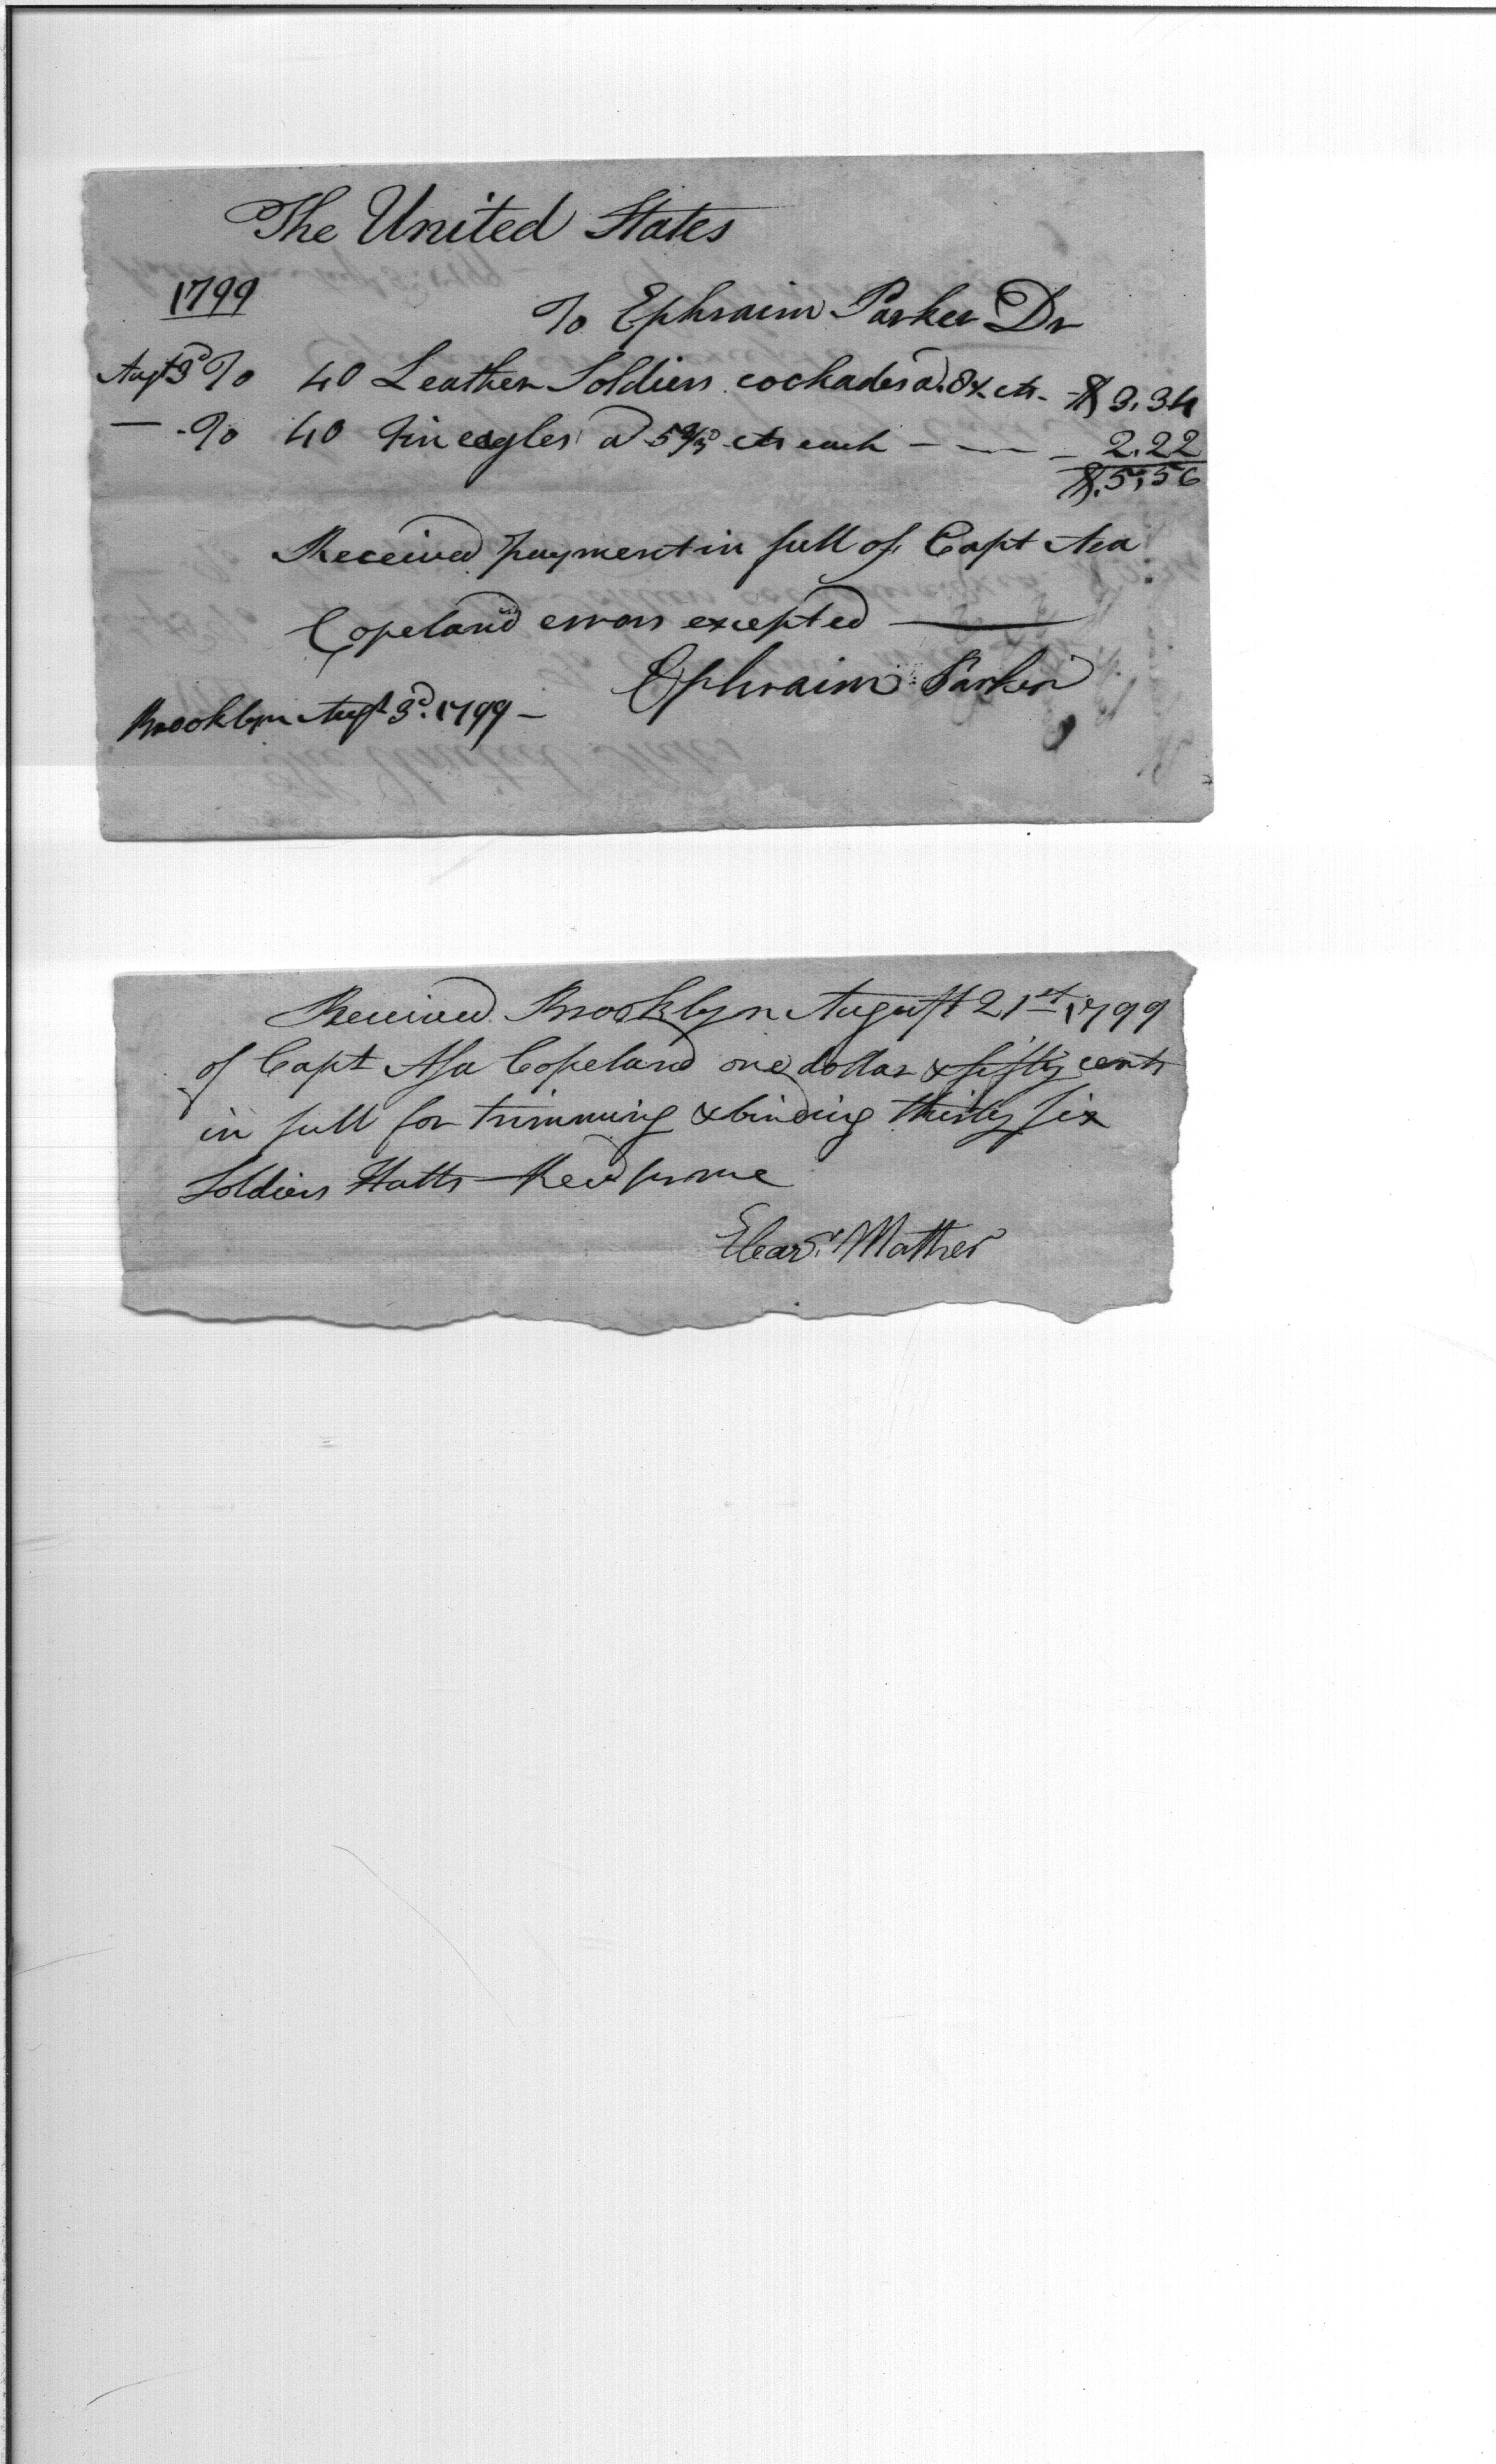 The United States
1799
To Ephraim Parker Dr
Augt 3d To 40 Leather Soldiers cockades a. 8⅓ cts - $3.34
— - To 40 tin eagles a 5 cts each - — - 2.22
$.5,56
Received payment in full of Capt Asa
Copeland errors excepted —
Ephraim Parker
Brooklyn Augt 3d. 1799 -
Received Brooklyn August 21st 1799
of Capt Asa Copeland one dollar & fifty cents
in full for trimming & binding thirty six
Soldiers Hatts
Mather